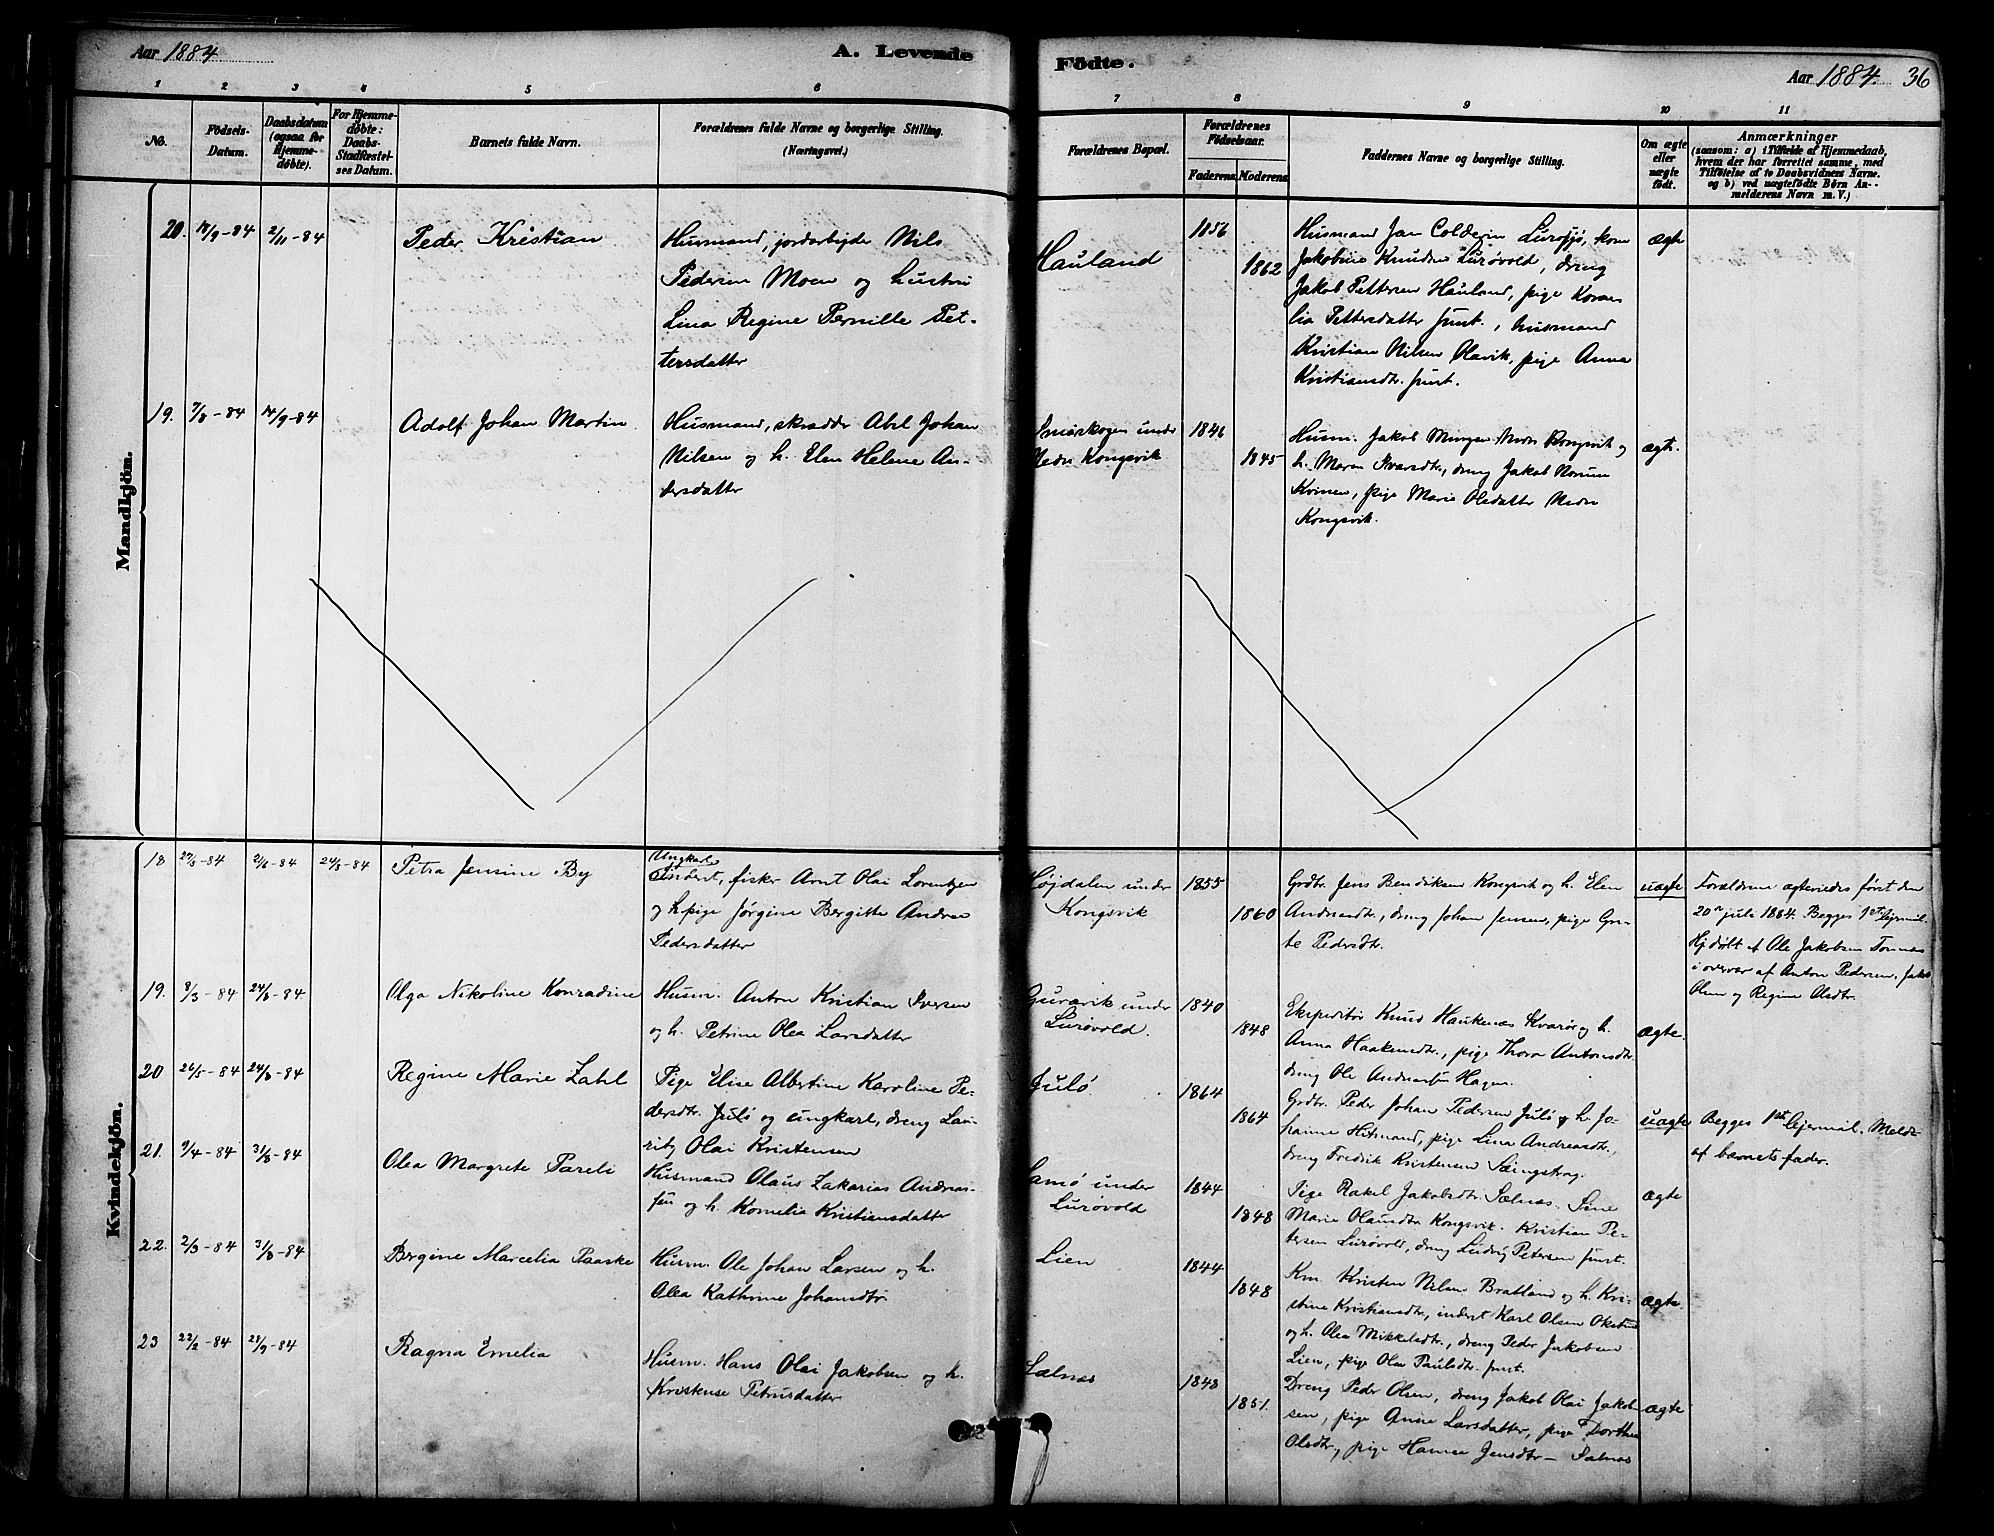 Aar 1884
A. Levende
Födte.
Aar 1884. 36
1 2 3 4 5 6 7 8 9 10 11
No.
Födsels-
Datum.
Daabsdatum
(ogsaa for
Hjemme-
døbte).
For Hjemme-
døbte:
Daabs-
Stadfæstel-
ses Datum.
Barnets fulde Navn.
Forældrenes fulde Navne og borgerlige Stilling.
(Næringsvei.)
Forældrenes Bopæl.
Forældrenes
Födselsaar.
Faderens. Moderens.
Faddernes Navne og borgerlige Stilling.
Om ægte
eller
uægte
födt.
Anmærkninger
(saasom: a) i Tilfælde af Hjemmedaab,
hvem der har forrettet samme, med
Tilföielse af to Daabsvidners Navne.
og b) ved uægtefödte Börn An-
melderens Navn m. V.)
Mandkjön.
20. 14/9-84 2/11-84
Peder Kristian
Husmand, jordarbejder Nils
Pedersen Moen og hustru
Lina Regine Pernille Pet-
tersdatter
Hauland
1856
1862
Husmand Jan Colderin Lurøfjs, kone
Jakobine Knudsen Lurøvold, dreng
Jakob Pettersen Hauland, pige Korne
lia Pettersdatter smst., husmand
Kristian Nilsen Olavik, pige Anna
Kristiansdtr. smst.
ægte
19. 7/8-84 14/9-84
Adolf Johan Martin
Husmand, skrædder Abel Johan
Nilsen og h. Elen Helene An-
dersdatter
Småskogen under
Nedre Kongsvik
1846
1845
Husm. Jakob Nedre Kongsvik og
h. Maren Ivarsdtr, dreng Jakob
Kvinen, pige Marie Olsdatter Nedre
Kongsvik.
ægte.
Kvindekjön.
18 27/3-84 2/6-84 24/8-84
Petra Jensine By
Ungkarl
Inderst, fisker Arnt Olai Lorentzen
og h pige Jørgine Bergitte Andrea
Pedersdatter
Højdalen under
Kongsvik
1855
1860
Grdbr. Jens Bendiksen Kongsvik og h. Elen
Andreasdtr, dreng Johan Jensen, pige Gru-
te Pedersdtr.
uægte
Forældrene ægteviedes først den
20de juli 1884. Begges 1ste lejermål.
Hj døbt af Ole Jakobsen Tonnes
i overvær af Anton Pedersen, Jakob
Olsen og Regine Olsdtr.
19. 8/3-84 24/8-84
Olga Nikoline Konradine
Husm. Anton Kristian Iversen
og h. Petrine Olea Larsdatter
Guravik under
Lurøvold.
1840
1848
Ekspeditør Knud Haukenæs Kvarøe og h.
Anna Haakensdtr., pige Thora Antonsdtr.
dreng Ole Andreas Hagen.
ægte.
20 26/5-84 24/8-84
Regine Marie Zahl
Pige Elise Albertine Karoline Pe-
dersdtr. Julø og ungkarl, dreng Lau-
ritz Olai Kristensen
Julø
1864
1864
Grdbr. Peder Johan Pedersen Julø og h. Jo-
hanna Hitsmand, pige Lina Andreasdtr.,
dreng Fredrik Kristensen
uægte
Begges 1ste lejermål. Meldt
af barnets fader.
21. 9/4-84 31/8-84
Olea Margrete Pareli
Husmand Olaus Zakarias Andreas-
sen og h. Kornelia Kristiansdatter
Lamø under
Lurøvold
1844
1848
Pige Rakel Jakobsdtr. Sælnæs. Sine
Marie Olausdtr. Kongsvik. Kristian Pe-
tersen Lurøvold, dreng Ludvig Petersen smst.
ægte
22. 2/3-84 31/8-84
Bergine Marcelia Paaske
Husm. Ole Johan Larsen og h.
Olea Kathrine Johansdtr.
Lien
1844
1848
Km Kristen Nilsen Bratland og h. Kri-
stine Kristiansdtr., inderst Karl Olsen
og h. Olea Mikkelsdtr., dreng Peder Jakobsen
Lien, pige Olea Paulsdtr. smst.
ægte.
23 22/2-84 28/9-84
Ragna Emelia
Husm. Hans Olai Jakobsen og h.
Kristense Petrusdatter
Sælnæs
1848
1851.
Dreng Peder Olsen, dreng Jakob Olai Jakob-
sen, pige Anne Larsdatter, pige Dorthea
Olsdtr, pige Hansea Jensdtr - Sælnæs
ægte